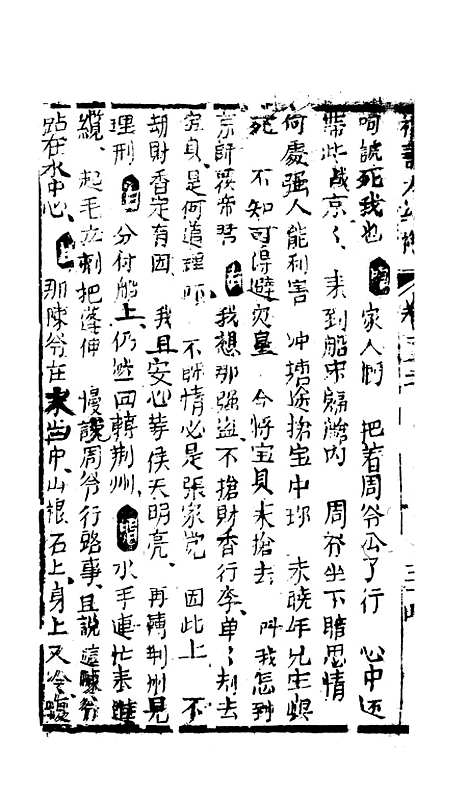 呵諕死我也 唱 家人們 把着周爷公了行 心中还
帶些戰京〻 来到船中艙內 周爷坐下暗思情
何處强人能利害 冲撞途搶宝中珎 未曉年兄生與
死 不知可得避灾星 今将宝貝来搶去 叫我怎到
京師獻帝君 白 我想那强盗不搶財香行李单〻刼去
宝貝是何道理 不昧情必是張家党 因此上 不
刼財香定有因 我且安心等侯天明亮 再轉荆州見
理刑 白 分付船上仍然回轉荆州 唱 水手連忙来
纜 起毛立刺把篷伸 慢說周爷行路事且說這陳爷
跕在水中心 白 那陳爷在水当中山根石上身上又冷